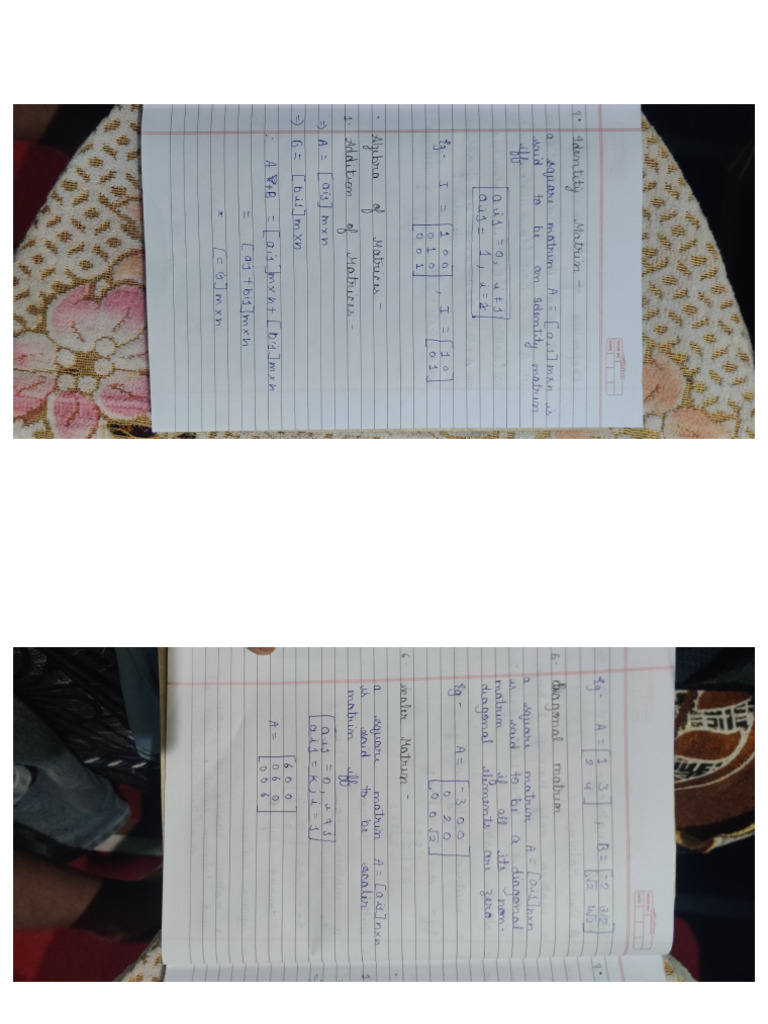 7. Identity Matrix -
a square matrix A = [aij]m×n is
said to be an identity matrix
iff
aij = 0, i ≠ j
aij = 1, i = j
Eg - I = [1 0 0
0 1 0
0 0 1] , I = [1 0
0 1]
• Algebra of Matrices -
1. Addition of Matrices -
⇒ A = [aij]m×n
⇒ B = [bij]m×n
∴ A + B = [aij]m×n + [bij]m×n
= [aj + bij]m×n
= [cij]m×n
Eg - A = [1 3
2 4] , B = [-2 3/2
5. diagonal matrix
a square matrix A = [aij]n×n
is said to be a diagonal
matrix if all its non-
diagonal elements are zero.
Eg - A = [-3 0 0
0 2 0
0 0 √2]
6. scaler Matrix -
a square matrix A = [aij]n×n
is said to be scaler
matrix iff
aij = 0, i ≠ j
aij = K, i = j
A = [6 0 0
0 6 0
0 0 6]